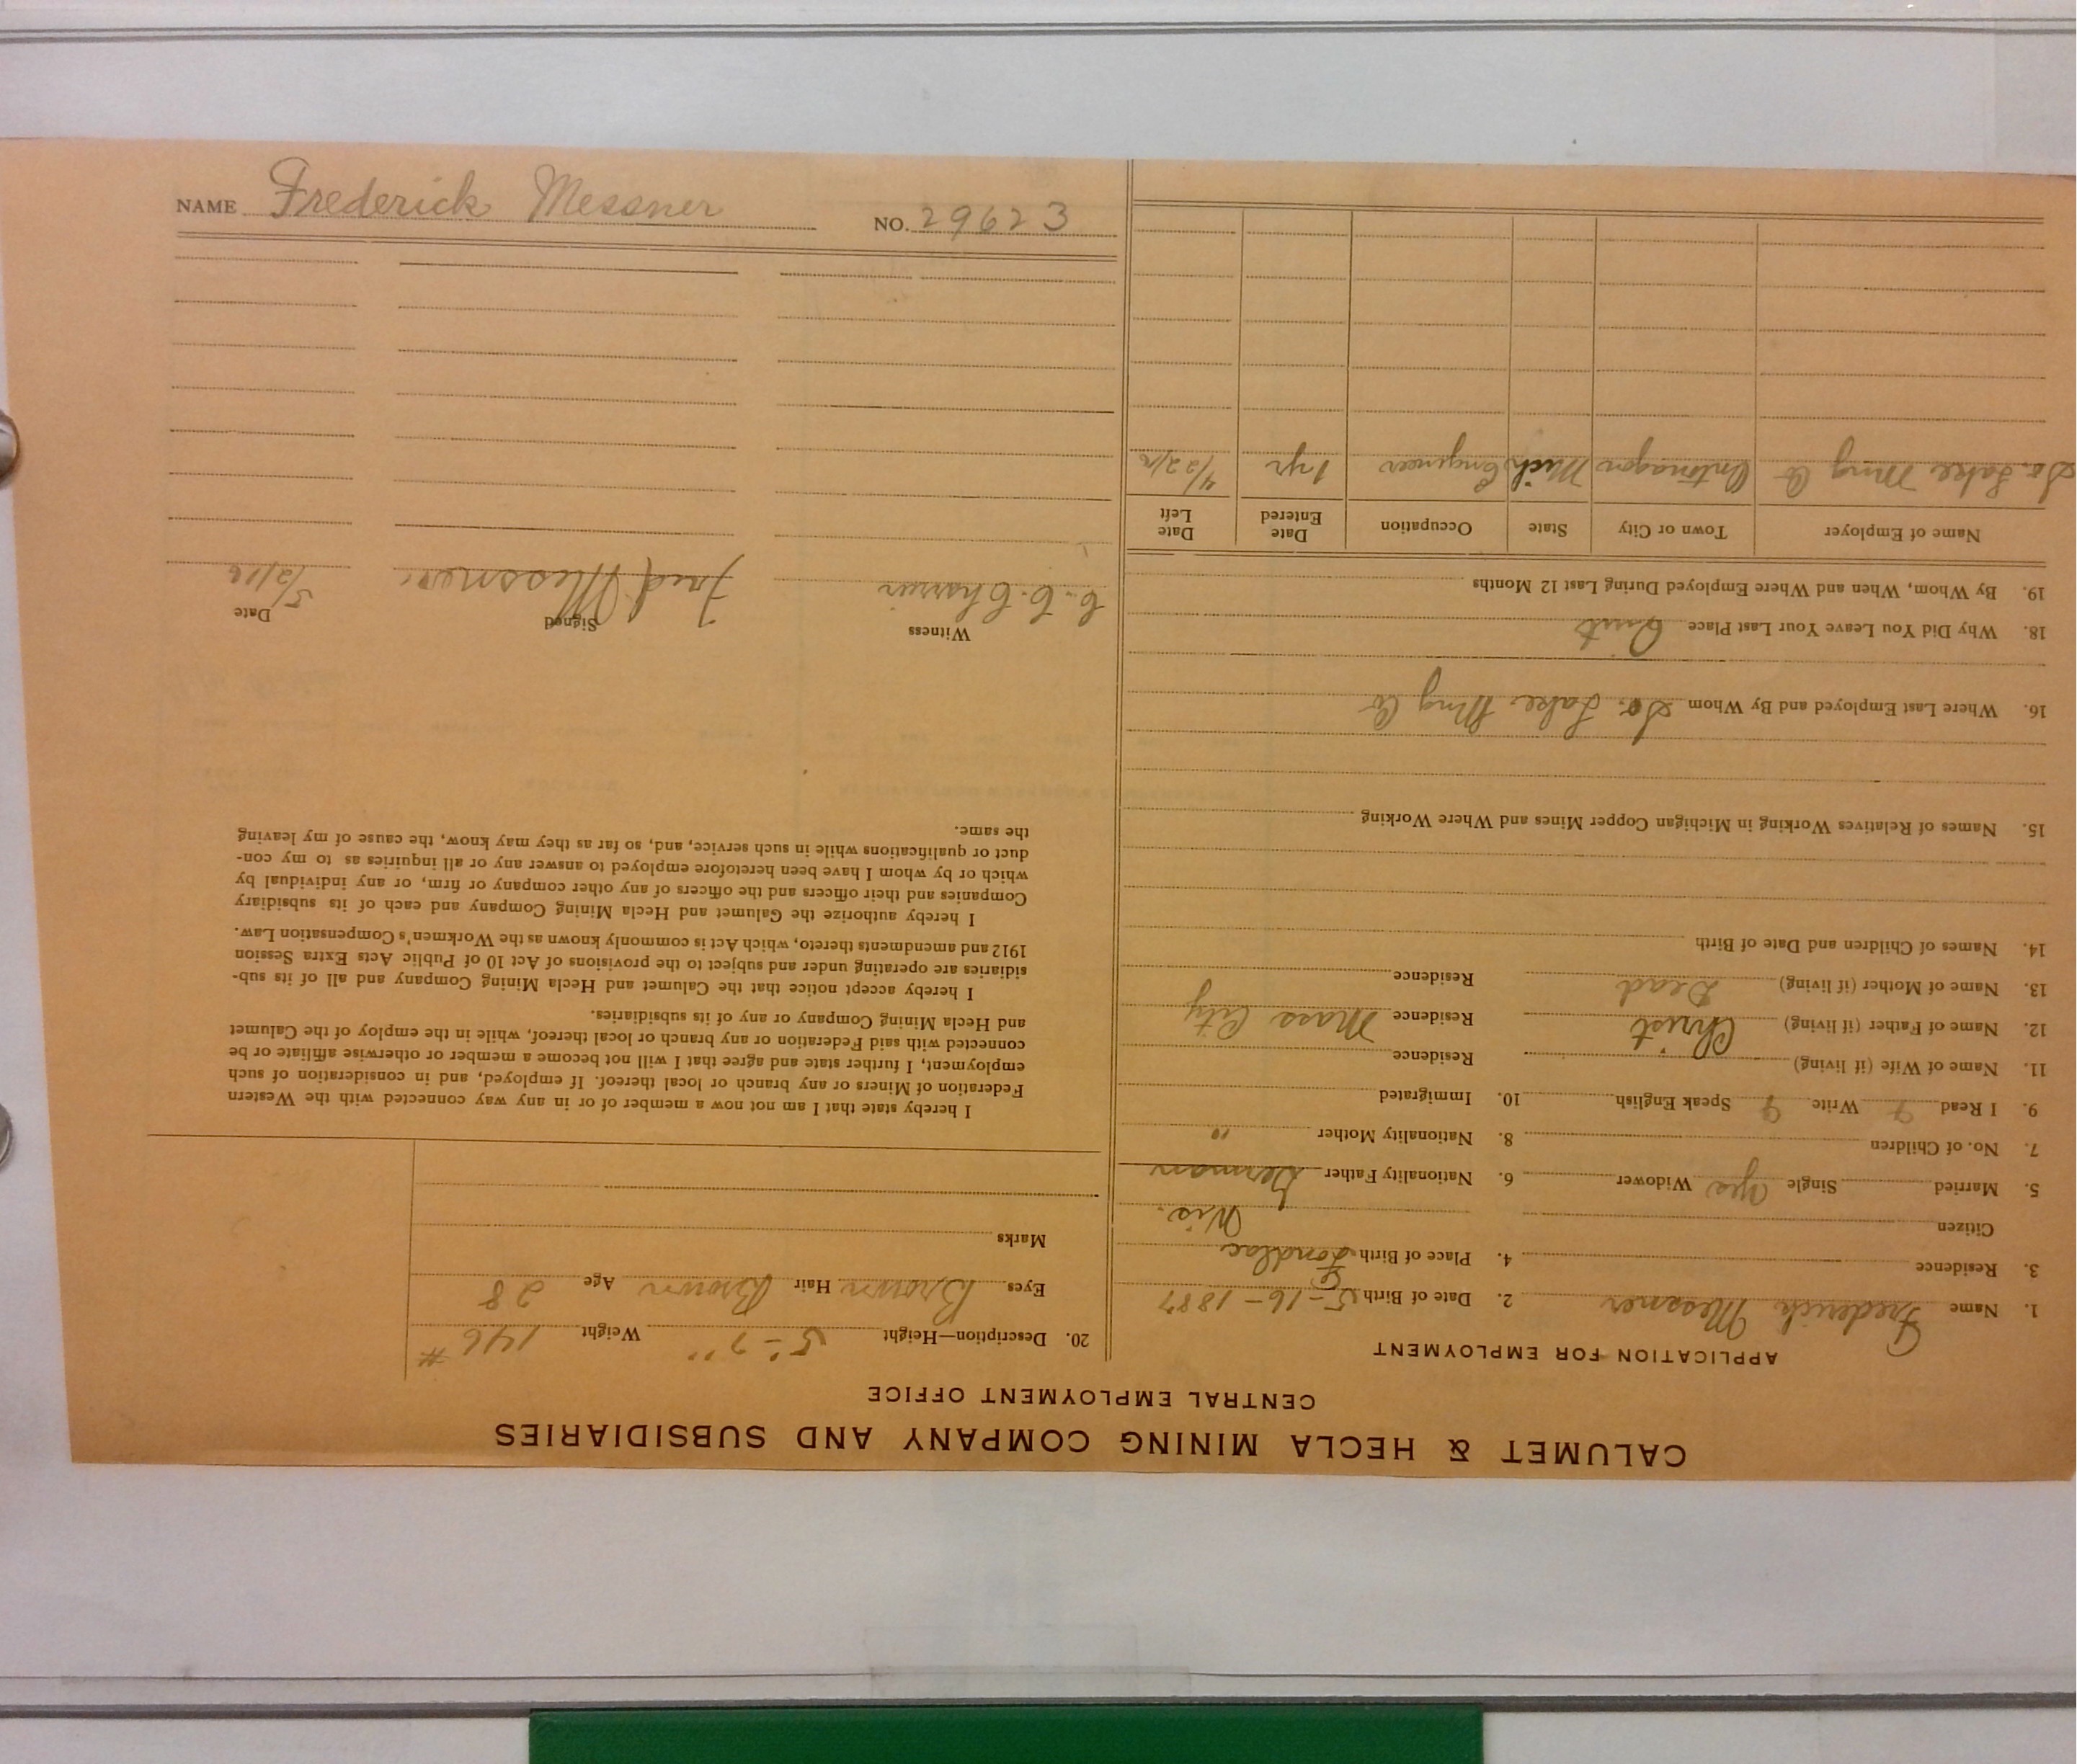 NAME Frederick Messner NO. 29623
CALUMET & HECLA MINING COMPANY AND SUBSIDIARIES
CENTRAL EMPLOYMENT OFFICE
APPLICATION FOR EMPLOYMENT
1. Name Frederick Messner 2. Date of Birth 5-16-1887
3. Residence 4. Place of Birth Fondlac
Citizen Wis.
5. Married Single Yes Widower 6. Nationality Father German
7. No. of Children 8. Nationality Mother "
9. I Read Write Speak English 10. Immigrated
11. Name of Wife (if living) Residence
12. Name of Father (if living) Christ Residence Mass City
13. Name of Mother (if living) Dead Residence
14. Names of Children and Date of Birth
15. Names of Relatives Working in Michigan Copper Mines and Where Working
16. Where Last Employed and By Whom So. Lake Mng Co
18. Why Did You Leave Your Last Place Quit
19. By Whom, When and Where Employed During Last 12 Months
Name of Employer Town or City State Occupation Date Entered Date Left
So. Lake Mng Co Ontonagon Mich Engineer 1 yr 4/22/16
20. Description—Height 5'-7" Weight 146 #
Eyes Brown Hair Brown Age 28
Marks
I hereby state that I am not now a member of or in any way connected with the Western
Federation of Miners or any branch or local thereof. If employed, and in consideration of such
employment, I further state and agree that I will not become a member or otherwise affiliate or be
connected with said Federation or any branch or local thereof, while in the employ of the Calumet
and Hecla Mining Company or any of its subsidiaries.
I hereby accept notice that the Calumet and Hecla Mining Company and all of its sub-
sidiaries are operating under and subject to the provisions of Act 10 of Public Acts Extra Session
1912 and amendments thereto, which Act is commonly known as the Workmen's Compensation Law.
I hereby authorize the Calumet and Hecla Mining Company and each of its subsidiary
Companies and their officers and the officers of any other company or firm, or any individual by
which or by whom I have been heretofore employed to answer any or all inquiries as to my con-
duct or qualifications while in such service, and, so far as they may know, the cause of my leaving
the same.
Witness Signed Date
C. C. Fred Messner 5/2/16